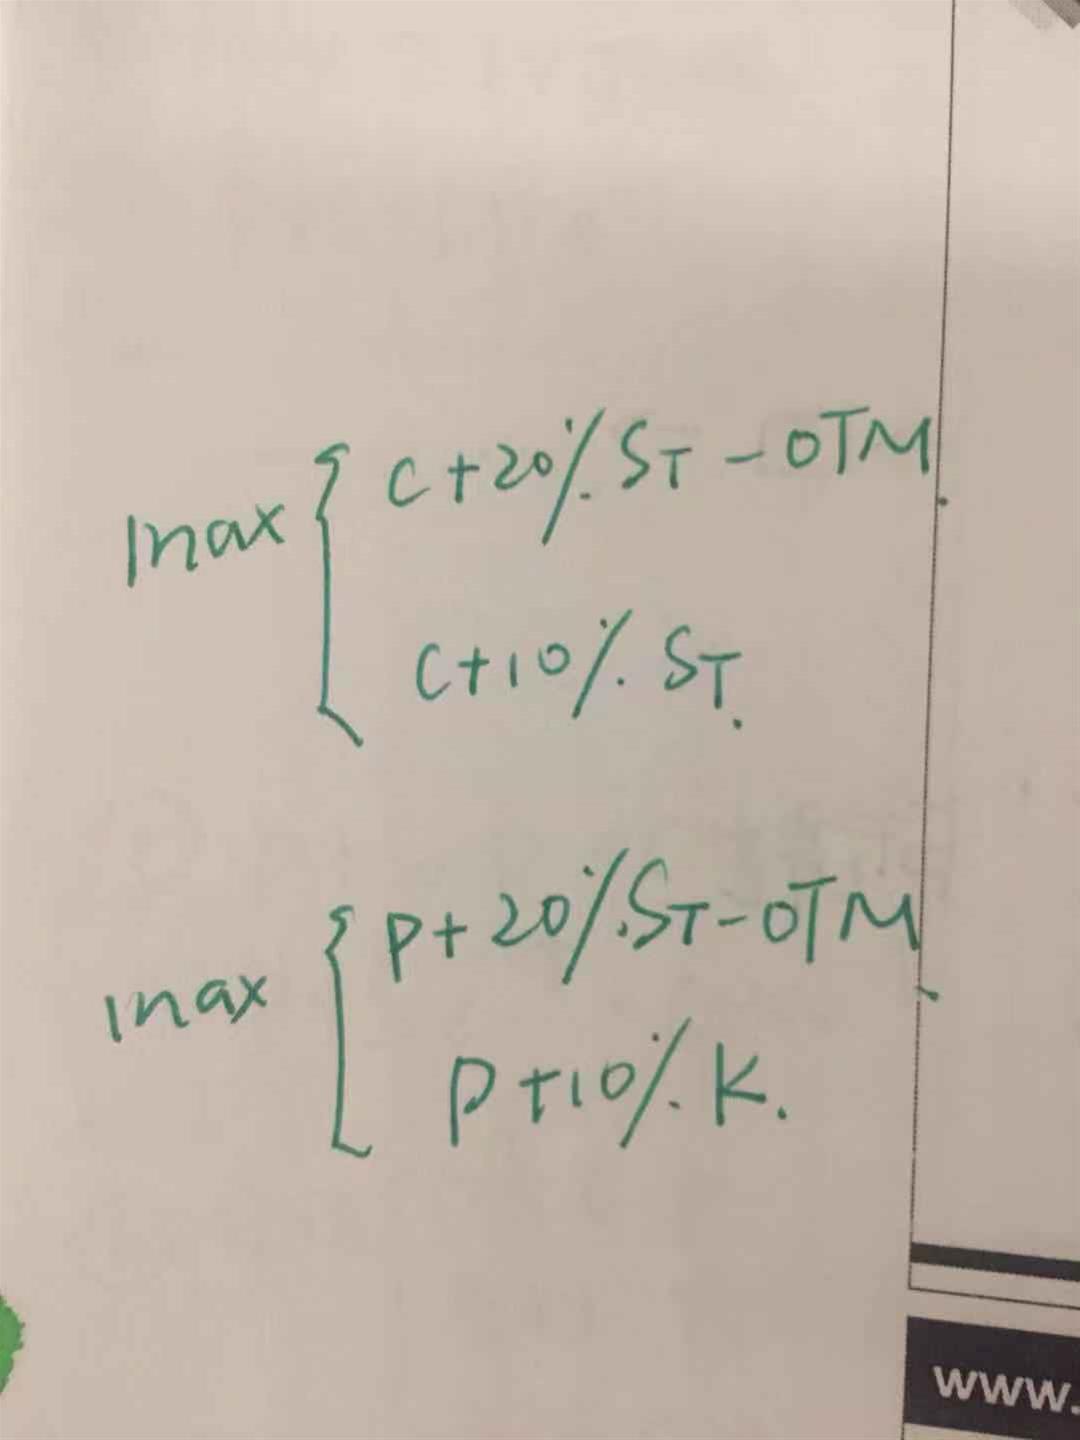 max { C+20% ST - OTM.
C+10% ST.
max { P+20% ST-OTM.
P+10% K.
www.